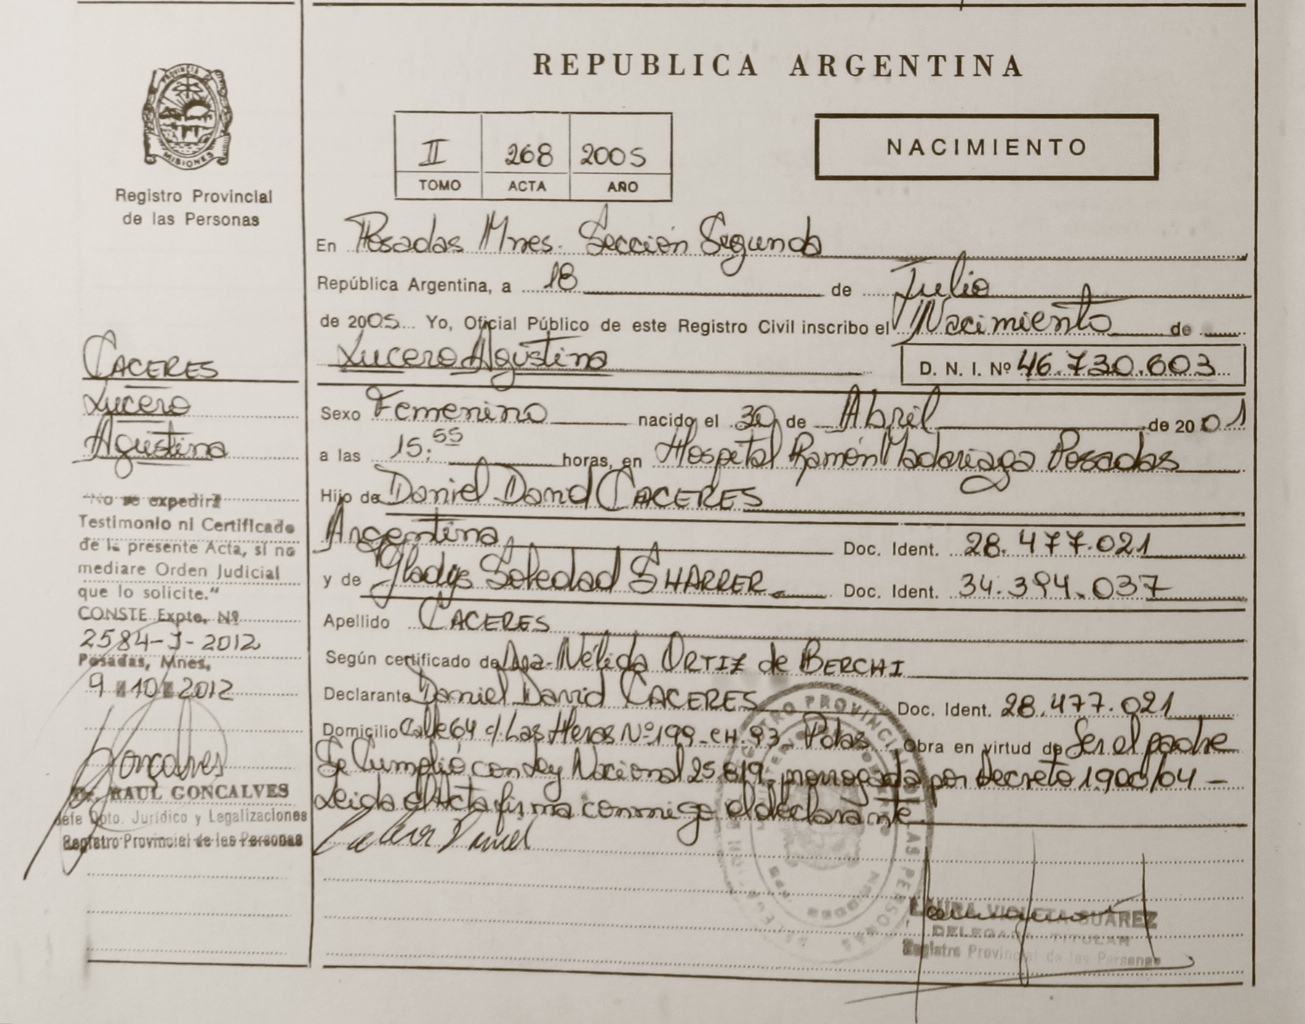 REPUBLICA ARGENTINA
PROVINCIA DE
MISIONES
Registro Provincial
de las Personas
II 268 2005
TOMO ACTA AÑO
NACIMIENTO
En Posadas Mnes. Sección Segunda
República Argentina, a 18 de Julio
de 2005 Yo, Oficial Público de este Registro Civil inscribo el Nacimiento de
Lucero Agustina D. N. I. Nº 46.730.603
Sexo Femenino nacido el 30 de Abril de 2001
a las 15:55 horas, en Hospital Ramón Madariaga Posadas
Hijo de Daniel David CACERES
Argentina Doc. Ident. 28.477.021
y de Gladys Soledad SHARRER. Doc. Ident. 34.394.037
Apellido CACERES
Según certificado de Nélida ORTIZ de BERCHI
Declarante Daniel David CACERES Doc. Ident. 28.477.021
Domicilio Calle 64 c/ Las Heras Nº 199 - CH. 93 Pdas. Obra en virtud de Ser el padre
Se Cumplió con Ley Nacional 25.819 por Decreto 1900/04 -
Leida el Acta firma conmigo el declarante
CACERES
Lucero
Agustina
"No se expedirá
Testimonio ni Certificado
de la presente Acta, si no
mediare Orden Judicial
que lo solicite."
CONSTE Expte. Nº
2584-J-2012
Posadas, Mnes,
9 10 2012
Goncalves
Dr. RAUL GONCALVES
Jefe Dpto. Jurídico y Legalizaciones
Registro Provincial de las Personas
REGISTRO PROVINCIAL DE LAS PERSONAS
LAURA VIOLETA SUAREZ
DELEGADA TITULAR
Registro Provincial de las Personas